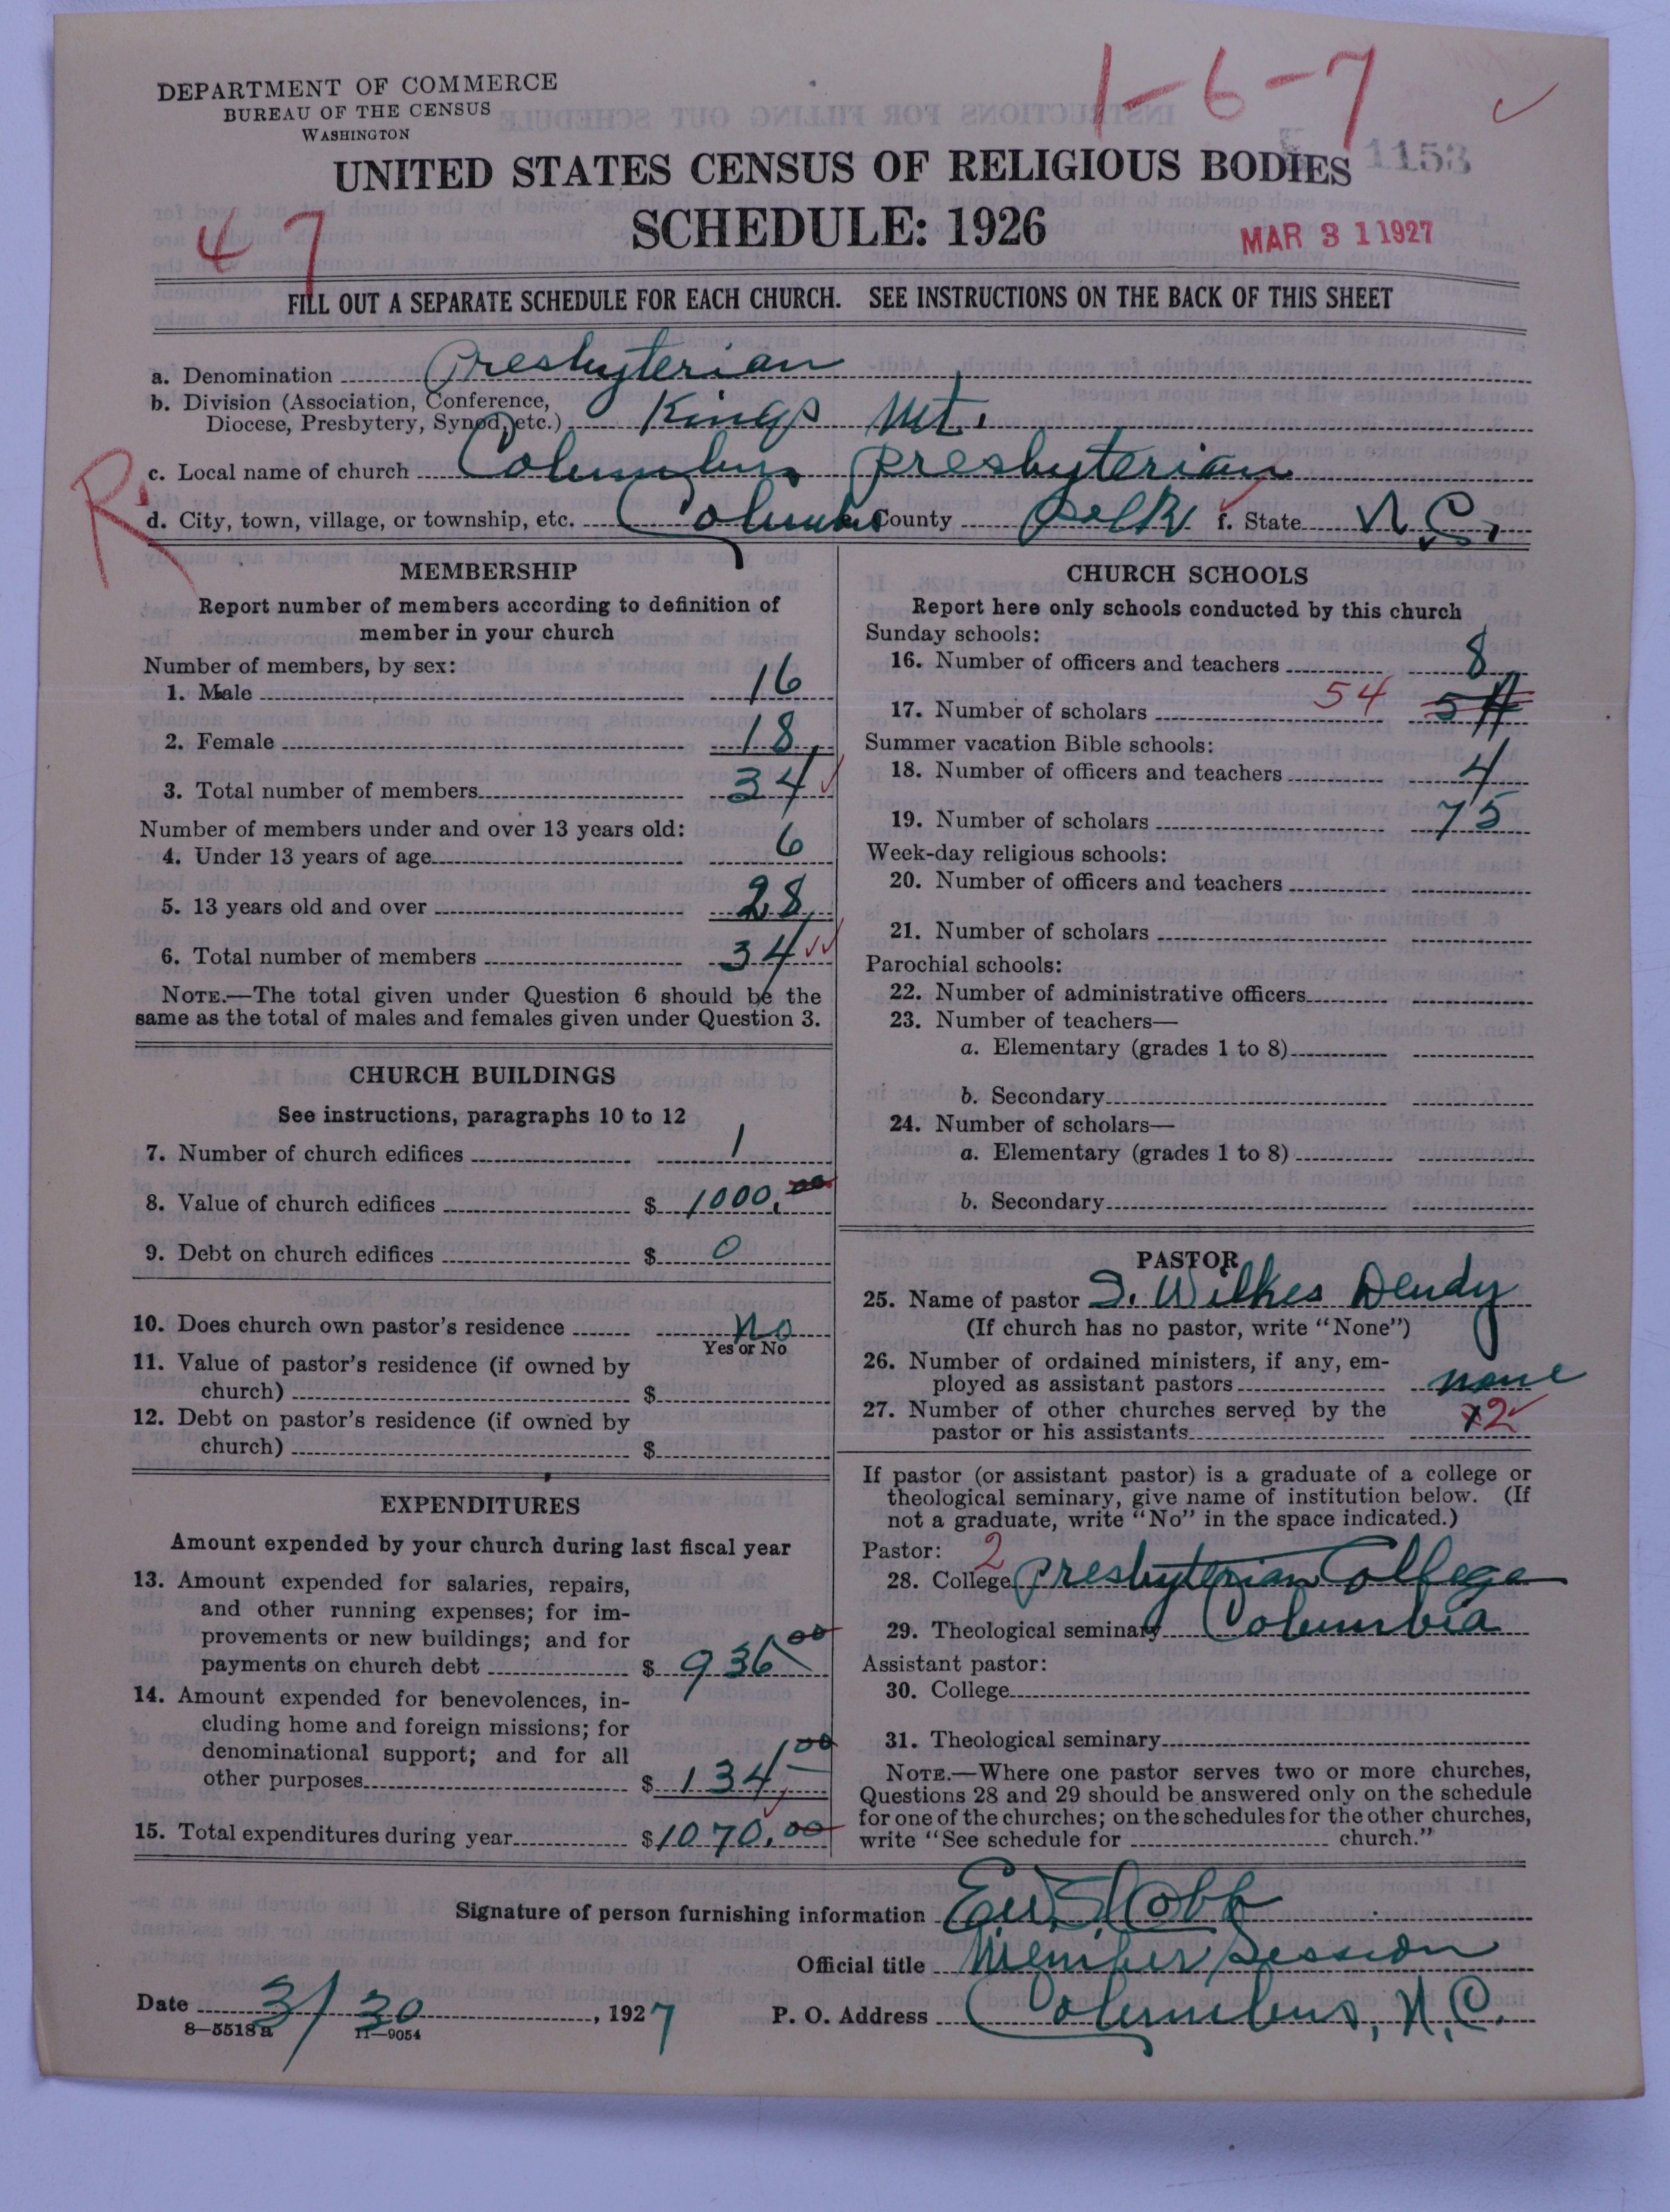 1-6-7
DEPARTMENT OF COMMERCE
BUREAU OF THE CENSUS
WASHINGTON
UNITED STATES CENSUS OF RELIGIOUS BODIES
1153
SCHEDULE: 1926
47
MAR 31 1927
FILL OUT A SEPARATE SCHEDULE FOR EACH CHURCH. SEE INSTRUCTIONS ON THE BACK OF THIS SHEET
a. Denomination Presbyterian
b. Division (Association, Conference,
Diocese, Presbytery, Synod, etc.) Kings Mt.
R
c. Local name of church Columbus Presbyterian
d. City, town, village, or township, etc. Columbus e. County Polk f. State N.C.
MEMBERSHIP
Report number of members according to definition of
member in your church
Number of members, by sex:
1. Male 16
2. Female 18
3. Total number of members 34
Number of members under and over 13 years old:
4. Under 13 years of age 6
5. 13 years old and over 28
6. Total number of members 34
NOTE.—The total given under Question 6 should be the
same as the total of males and females given under Question 3.
CHURCH BUILDINGS
See instructions, paragraphs 10 to 12
7. Number of church edifices 1
8. Value of church edifices $ 1000.00
9. Debt on church edifices $ 0
10. Does church own pastor's residence No
Yes or No
11. Value of pastor's residence (if owned by
church) $
12. Debt on pastor's residence (if owned by
church) $
EXPENDITURES
Amount expended by your church during last fiscal year
13. Amount expended for salaries, repairs,
and other running expenses; for im-
provements or new buildings; and for
payments on church debt $ 936 00
14. Amount expended for benevolences, in-
cluding home and foreign missions; for
denominational support; and for all
other purposes $ 134 00
15. Total expenditures during year $ 1070.00
CHURCH SCHOOLS
Report here only schools conducted by this church
Sunday schools:
16. Number of officers and teachers 8
17. Number of scholars 54 54
Summer vacation Bible schools:
18. Number of officers and teachers 4
19. Number of scholars 75
Week-day religious schools:
20. Number of officers and teachers
21. Number of scholars
Parochial schools:
22. Number of administrative officers
23. Number of teachers—
a. Elementary (grades 1 to 8)
b. Secondary
24. Number of scholars—
a. Elementary (grades 1 to 8)
b. Secondary
PASTOR
25. Name of pastor S. Wilkes Dendy
(If church has no pastor, write "None")
26. Number of ordained ministers, if any, em-
ployed as assistant pastors none
27. Number of other churches served by the
pastor or his assistants 2
If pastor (or assistant pastor) is a graduate of a college or
theological seminary, give name of institution below. (If
not a graduate, write "No" in the space indicated.)
Pastor: 2
28. College Presbyterian College
29. Theological seminary Columbia
Assistant pastor:
30. College
31. Theological seminary
NOTE.—Where one pastor serves two or more churches,
Questions 28 and 29 should be answered only on the schedule
for one of the churches; on the schedules for the other churches,
write "See schedule for church."
Signature of person furnishing information Cobb
Official title Member Session
Date 3/30, 1927 P. O. Address Columbus, N.C.
8—5518a 11—9054